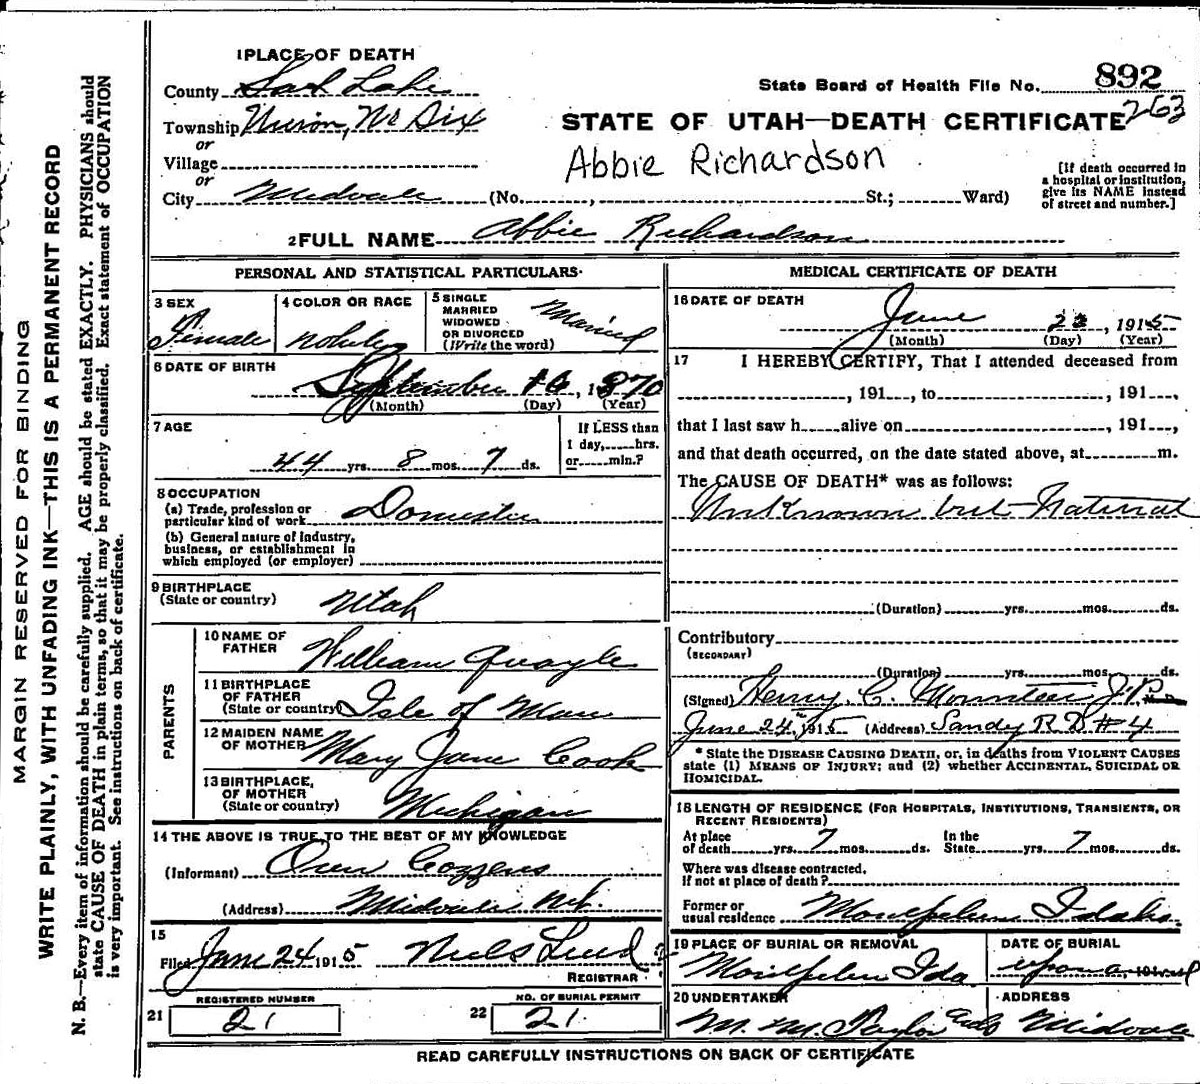 1 PLACE OF DEATH
County Salt Lake
Township Union, No Six
or
Village
or
City Midvale (No. , St.; Ward)
State Board of Health File No. 892
263
STATE OF UTAH—DEATH CERTIFICATE
Abbie Richardson
[If death occurred in
a hospital or institution,
give its NAME instead
of street and number.]
2 FULL NAME Abbie Richardson
PERSONAL AND STATISTICAL PARTICULARS
3 SEX
Female
4 COLOR OR RACE
5 SINGLE
MARRIED
WIDOWED
OR DIVORCED
(Write the word)
Married
6 DATE OF BIRTH
September 16, 1870
(Month) (Day) (Year)
7 AGE
44 yrs. 8 mos. 7 ds.
If LESS than
1 day, hrs.
or min.?
8 OCCUPATION
(a) Trade, profession or
particular kind of work Domestic
(b) General nature of industry,
business, or establishment in
which employed (or employer)
9 BIRTHPLACE
(State or country) Utah
PARENTS
10 NAME OF
FATHER William Quayle
11 BIRTHPLACE
OF FATHER
(State or country) Isle of Man
12 MAIDEN NAME
OF MOTHER Mary Jane Cook
13 BIRTHPLACE,
OF MOTHER
(State or country) Michigan
14 THE ABOVE IS TRUE TO THE BEST OF MY KNOWLEDGE
(Informant) Oren Cozzens
(Address) Midvale Ut.
15
Filed June 24 1915 Niels Lind
REGISTRAR
REGISTERED NUMBER
21 21
NO. OF BURIAL PERMIT
22 21
MEDICAL CERTIFICATE OF DEATH
16 DATE OF DEATH
June 23, 1915
(Month) (Day) (Year)
17 I HEREBY CERTIFY, That I attended deceased from
, 191 , to , 191 ,
that I last saw h alive on , 191 ,
and that death occurred, on the date stated above, at m.
The CAUSE OF DEATH* was as follows:
Unknown but Natural
(Duration) yrs. mos. ds.
Contributory
(SECONDARY)
(Duration) yrs. mos. ds.
(Signed) Henry C. J.P.
June 24, 1915 (Address) Sandy R.D. #4
* State the DISEASE CAUSING DEATH, or, in deaths from VIOLENT CAUSES
state (1) MEANS OF INJURY; and (2) whether ACCIDENTAL, SUICIDAL OR
HOMICIDAL.
18 LENGTH OF RESIDENCE (FOR HOSPITALS, INSTITUTIONS, TRANSIENTS, OR
RECENT RESIDENTS)
At place
of death yrs. 7 mos. ds. In the
State yrs. 7 mos. ds.
Where was disease contracted,
if not at place of death?
Former or
usual residence Montpelier Idaho.
19 PLACE OF BURIAL OR REMOVAL
Montpelier Ida
DATE OF BURIAL
upon 191
20 UNDERTAKER
M. M. Taylor
ADDRESS
Midvale
READ CAREFULLY INSTRUCTIONS ON BACK OF CERTIFICATE
MARGIN RESERVED FOR BINDING
WRITE PLAINLY, WITH UNFADING INK—THIS IS A PERMANENT RECORD
N. B.—Every item of information should be carefully supplied. AGE should be stated EXACTLY. PHYSICIANS should
state CAUSE OF DEATH in plain terms, so that it may be properly classified. Exact statement of OCCUPATION
is very important. See instructions on back of certificate.